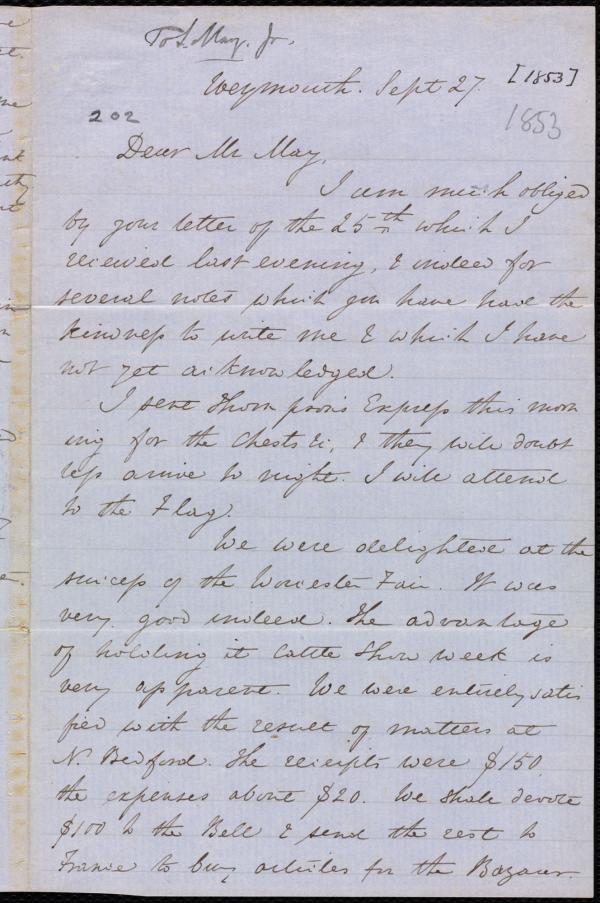 To S. May, Jr.
Weymouth. Sept 27. [1853]
1853
202
Dear Mr May,
I am much obliged
by your letter of the 25th which I
received last evening, & indeed for
several notes which you have had the
kindness to write me & which I have
not yet acknowledged.
I sent Thompson's Express this morn
ing for the Chests &c, & they will doubt
less arrive to night. I will attend
to the Flag.
We were delighted at the
success of the Worcester Fair. It was
very good indeed. The advantage
of holding it Cattle Show week is
very apparent. We were entirely satis
fied with the result of matters at
N. Bedford. The receipts were $150
the expenses about $20. We shall devote
$100 to the Bell & send the rest to
France to buy articles for the Bazaar.